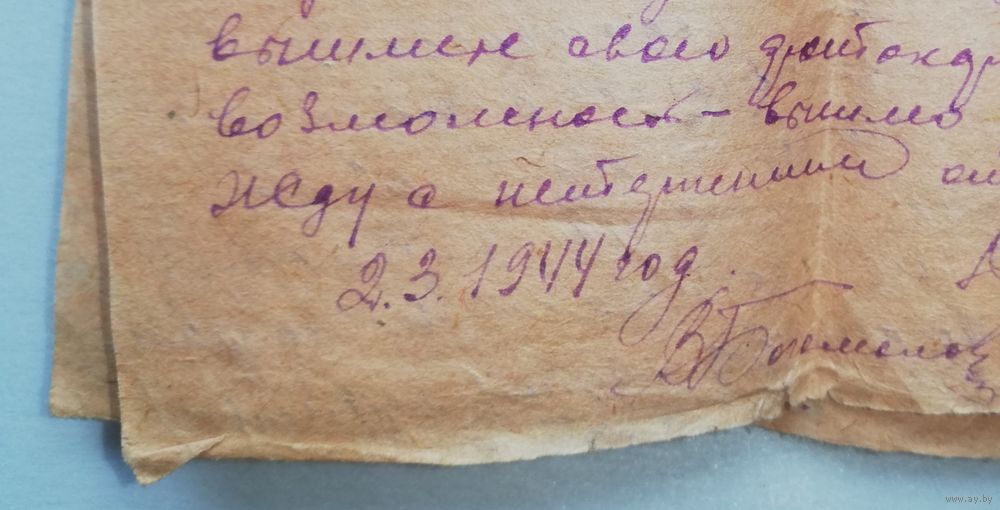 вышлите свое фотокар
возможность - вышлю
Жду с нетерпением
2.3.1944 год.
www.ay.by